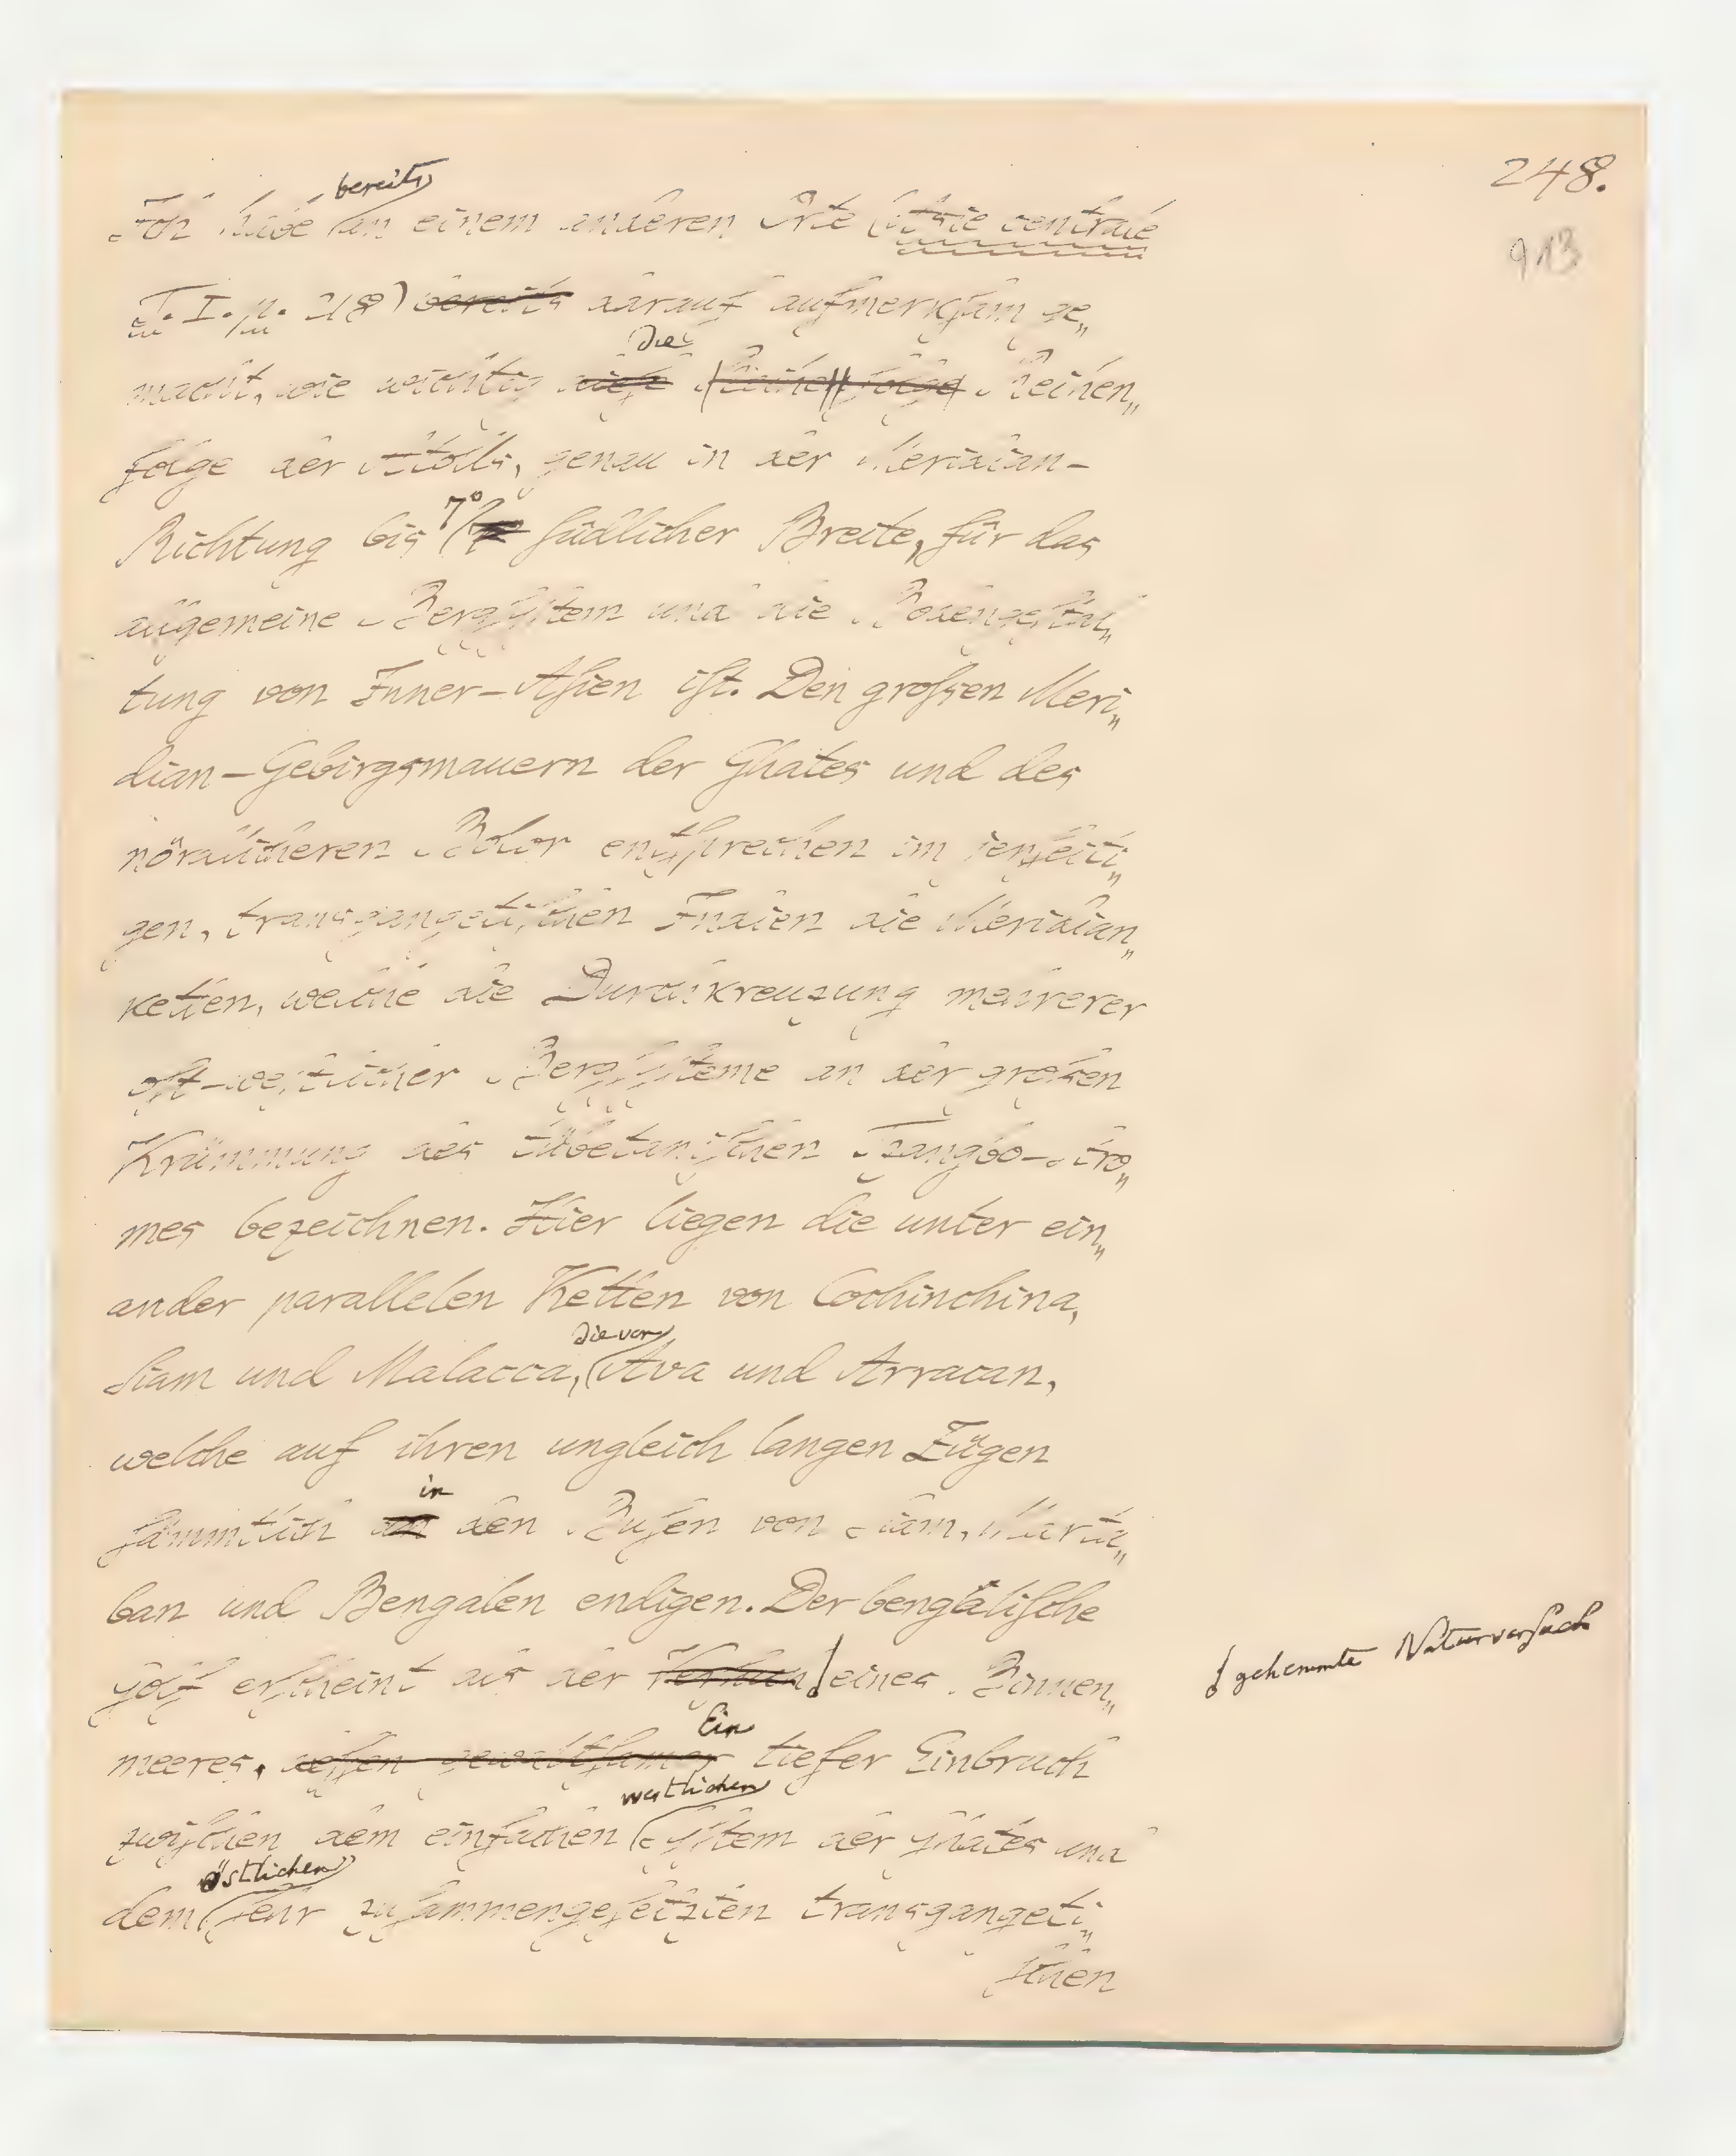 248.
913
bereits
Ich habe an einem anderen Orte (Asie centrale
T. I. p. 218) bereits darauf aufmerksam ge„
die
macht, wie wichtig diese Reihe folge Reihen„
folge der Atolls, genau in der Meridian-
7°
Richtung bis südlicher Breite, für das
allgemeine Bergsystem und die Bodengestal„
tung von Inner-Asien ist. Den großen Meri„
dian-Gebirgsmauern der Ghates und des
nördlicheren Bolor entsprechen im jenseiti„
gen, transgangetischen Indien die Meridian„
ketten, welche die Durchkreuzung mehrerer
ost-westlicher Bergsysteme an der großen
Krümmung des tübetanischen Tzangbo-Stro„
mes bezeichnen. Hier liegen die unter ein„
ander parallelen Ketten von Cochinchina,
die von
Siam und Malacca, Ava und Arracan,
welche auf ihren ungleich langen Zügen
in
sämmtlich an den Busen von Siam, Marta„
ban und Bengalen endigen. Der bengälische
Golf erscheint als der eines Binnen„
gehemmte Naturversuch
Ein
meeres, dessen gewaltsamer tiefer Einbruch
westlichen
zwischen dem einfachen System der Ghates und
östlichen
dem sehr zusammengesetzten transgangeti„
schen